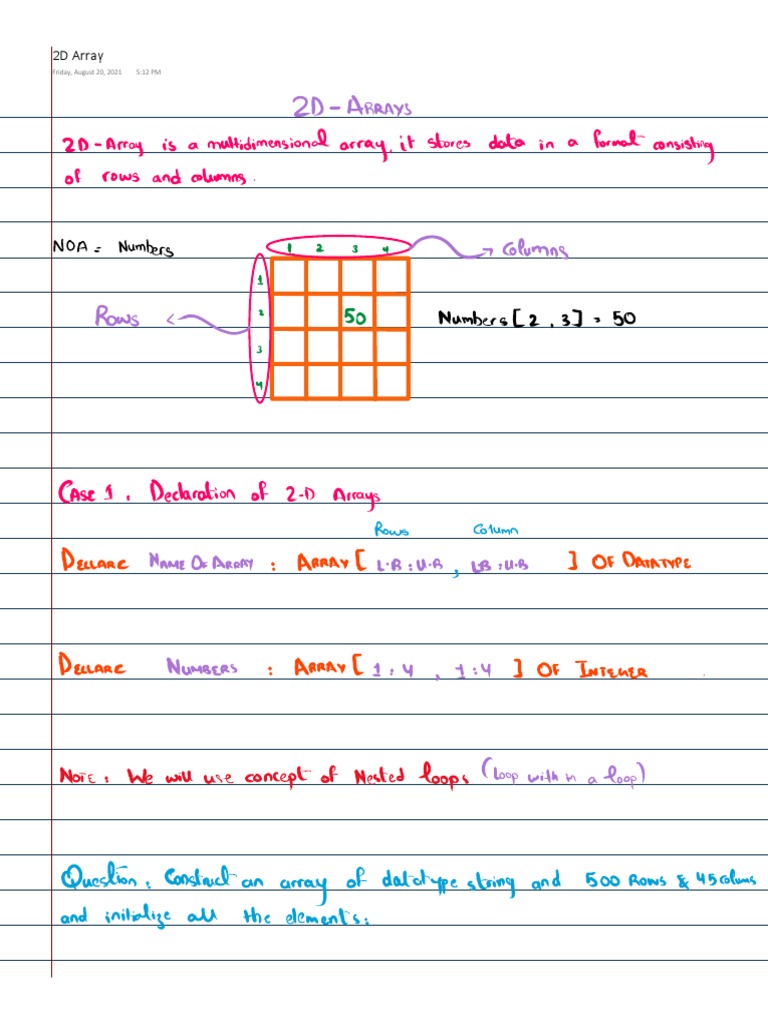 2D Array
Friday, August 20, 2021 5:12 PM
2D-ARRAYS
2D-Array is a multidimensional array, it stores data in a format consisting
of rows and columns.
NOA = Numbers
1 2 3 4
→ Columns
1
Rows ←
2
50
Numbers [2 , 3] = 50
3
4
CASE 1 : Declaration of 2-D Arrays
Rows Column
DECLARE NAME OF ARRAY : ARRAY [ L.B : U.B , LB : U.B ] OF DATATYPE
DECLARE NUMBERS : ARRAY [ 1 : 4 , 1 : 4 ] OF INTEGER
NOTE : We will use concept of Nested loops (loop with in a loop)
Question : Construct an array of datatype string and 500 Rows & 45 colums
and initialize all the elements :